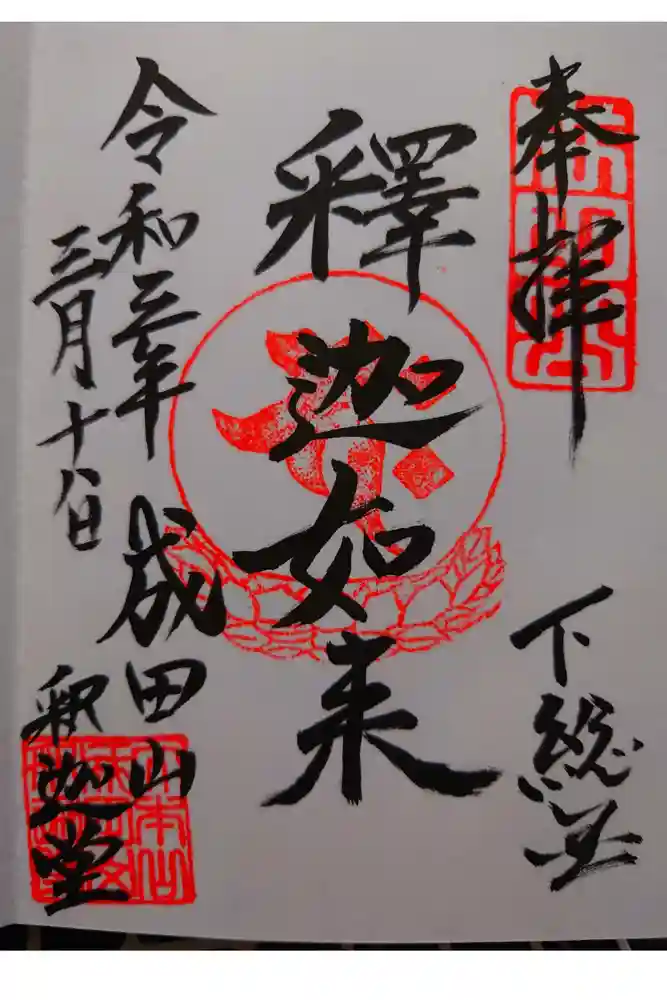 奉拝
下総国
釋迦如来
令和三年
三月十八日
成田山
釈迦堂